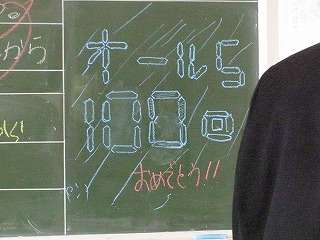 から
オール5
100回
おめでとう!!